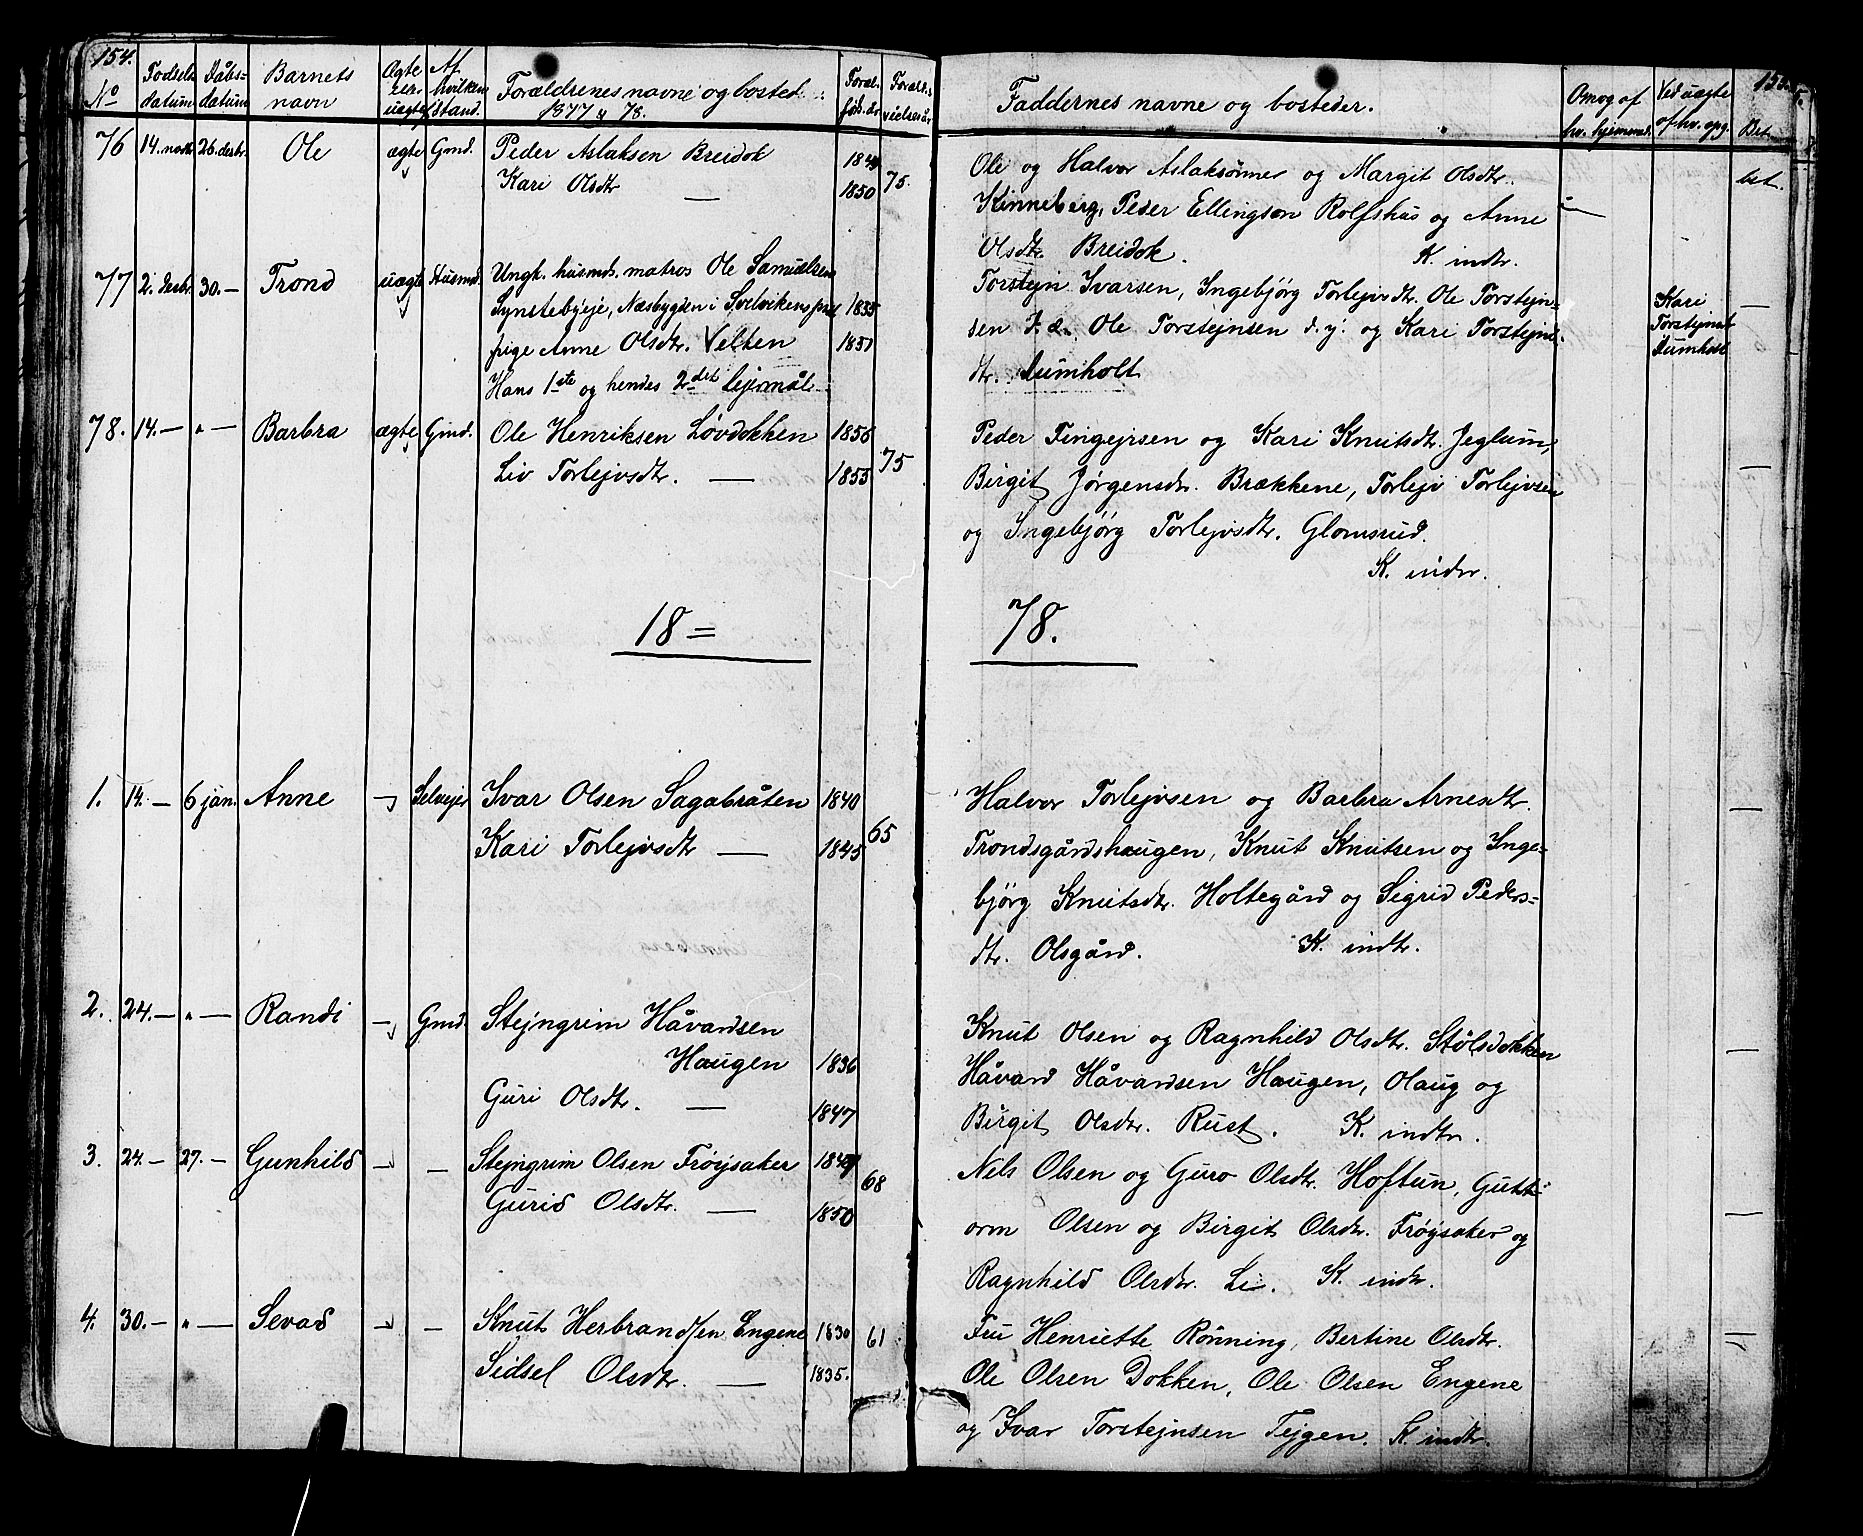 154.
No
Fødsels datum
Dåbs- datum
Barnets navn
Ægte eller uægte
Af hvilken stand.
Forældrenes navne og bosted
1877 & 78.
Foræl. fød. år
Foræld. vielsesår
76 14. novbr 26. decbr. Ole ægte Gmd. Peder Aslaksen Breidok 1849
Kari Olsdtr — 1850 75.
77 2. decbr 30. — Trond uægte Husmd. Ungk. husmds. matros Ole Samuelsen
Synstebyeje, Næsbygden i Svelvikens prst 1835
pige Anne Olsdtr. Velten 1851
Hans 1ste og hendes 2det lejermål
78. 14. — " — Barbra ægte Gmd. Ole Henriksen Løvdokken 1856
Liv Torlejvsdtr. — 1855 75
18=
1. 14. — 6 jan. Anne — Selvejer Ivar Olsen Sagabråten 1840
Kari Torlejvsdtr — 1845 65
2. 24. — " — Randi — Gmd. Stejngrim Håvardsen
Haugen 1836
Guri Olsdtr. — 1847
3. 24. — 27. — Gunhild — — Stejngrim Olsen Frøysaker 1847
Gurid Olsdtr. — 1850 68
4. 30. — " — Sevad — — Knut Herbrandsen Engene 1830 61
Sidsel Olsdtr. — 1835.
155.
Faddernes navne og bosteder.
Omvg af hv. hjemmed.
Ved uægte af hv. opg.
Bet.
Ole og Halvor Aslaksønner og Margit Olsdtr. bet.
Kinneberg, Peder Ellingsøn Rolfshus og Anne
Olsdtr. Breidok. K. indtr.
Torstejn Ivarsen, Ingebjørg Torlejvsdtr. Ole Torstejn-
sen d. æ. Ole Torstejnsen d. y. og Kari Torstejns-
dtr. Lumholt
Kari
Torstejnsdtr
Lumholt
Peder Tingejrsen og Kari Knutsdtr. Jeglum,
Birgit Jørgensdtr. Brækkene, Torlejv Torlejvsen
og Ingebjørg Torlejvsdtr. Glomsrud.
K. indtr.
78.
Halvor Torlejvsen og Barbra Arnesdtr.
Trondsgårdshaugen, Knut Knutsen og Inge-
bjørg Knutsdtr. Holtegård og Sigrid Peders-
dtr. Olsgård. K. indtr.
Knut Olsen og Ragnhild Olsdtr. Stølsdokken
Håvard Håvardsen Haugen, Olaug og
Birgit Olsdtr. Rust. K. indtr.
Nels Olsen og Guro Olsdtr. Hoftun, Gutt-
orm Olsen og Birgit Olsdtr. Frøysaker og
Ragnhild Olsdtr. Li. K. indtr.
Fru Henriette Rønning, Bertine Olsdtr.
Ole Olsen Dokken, Ole Olsen Engene
og Ivar Torstejnsen Tejgen. K. indtr.